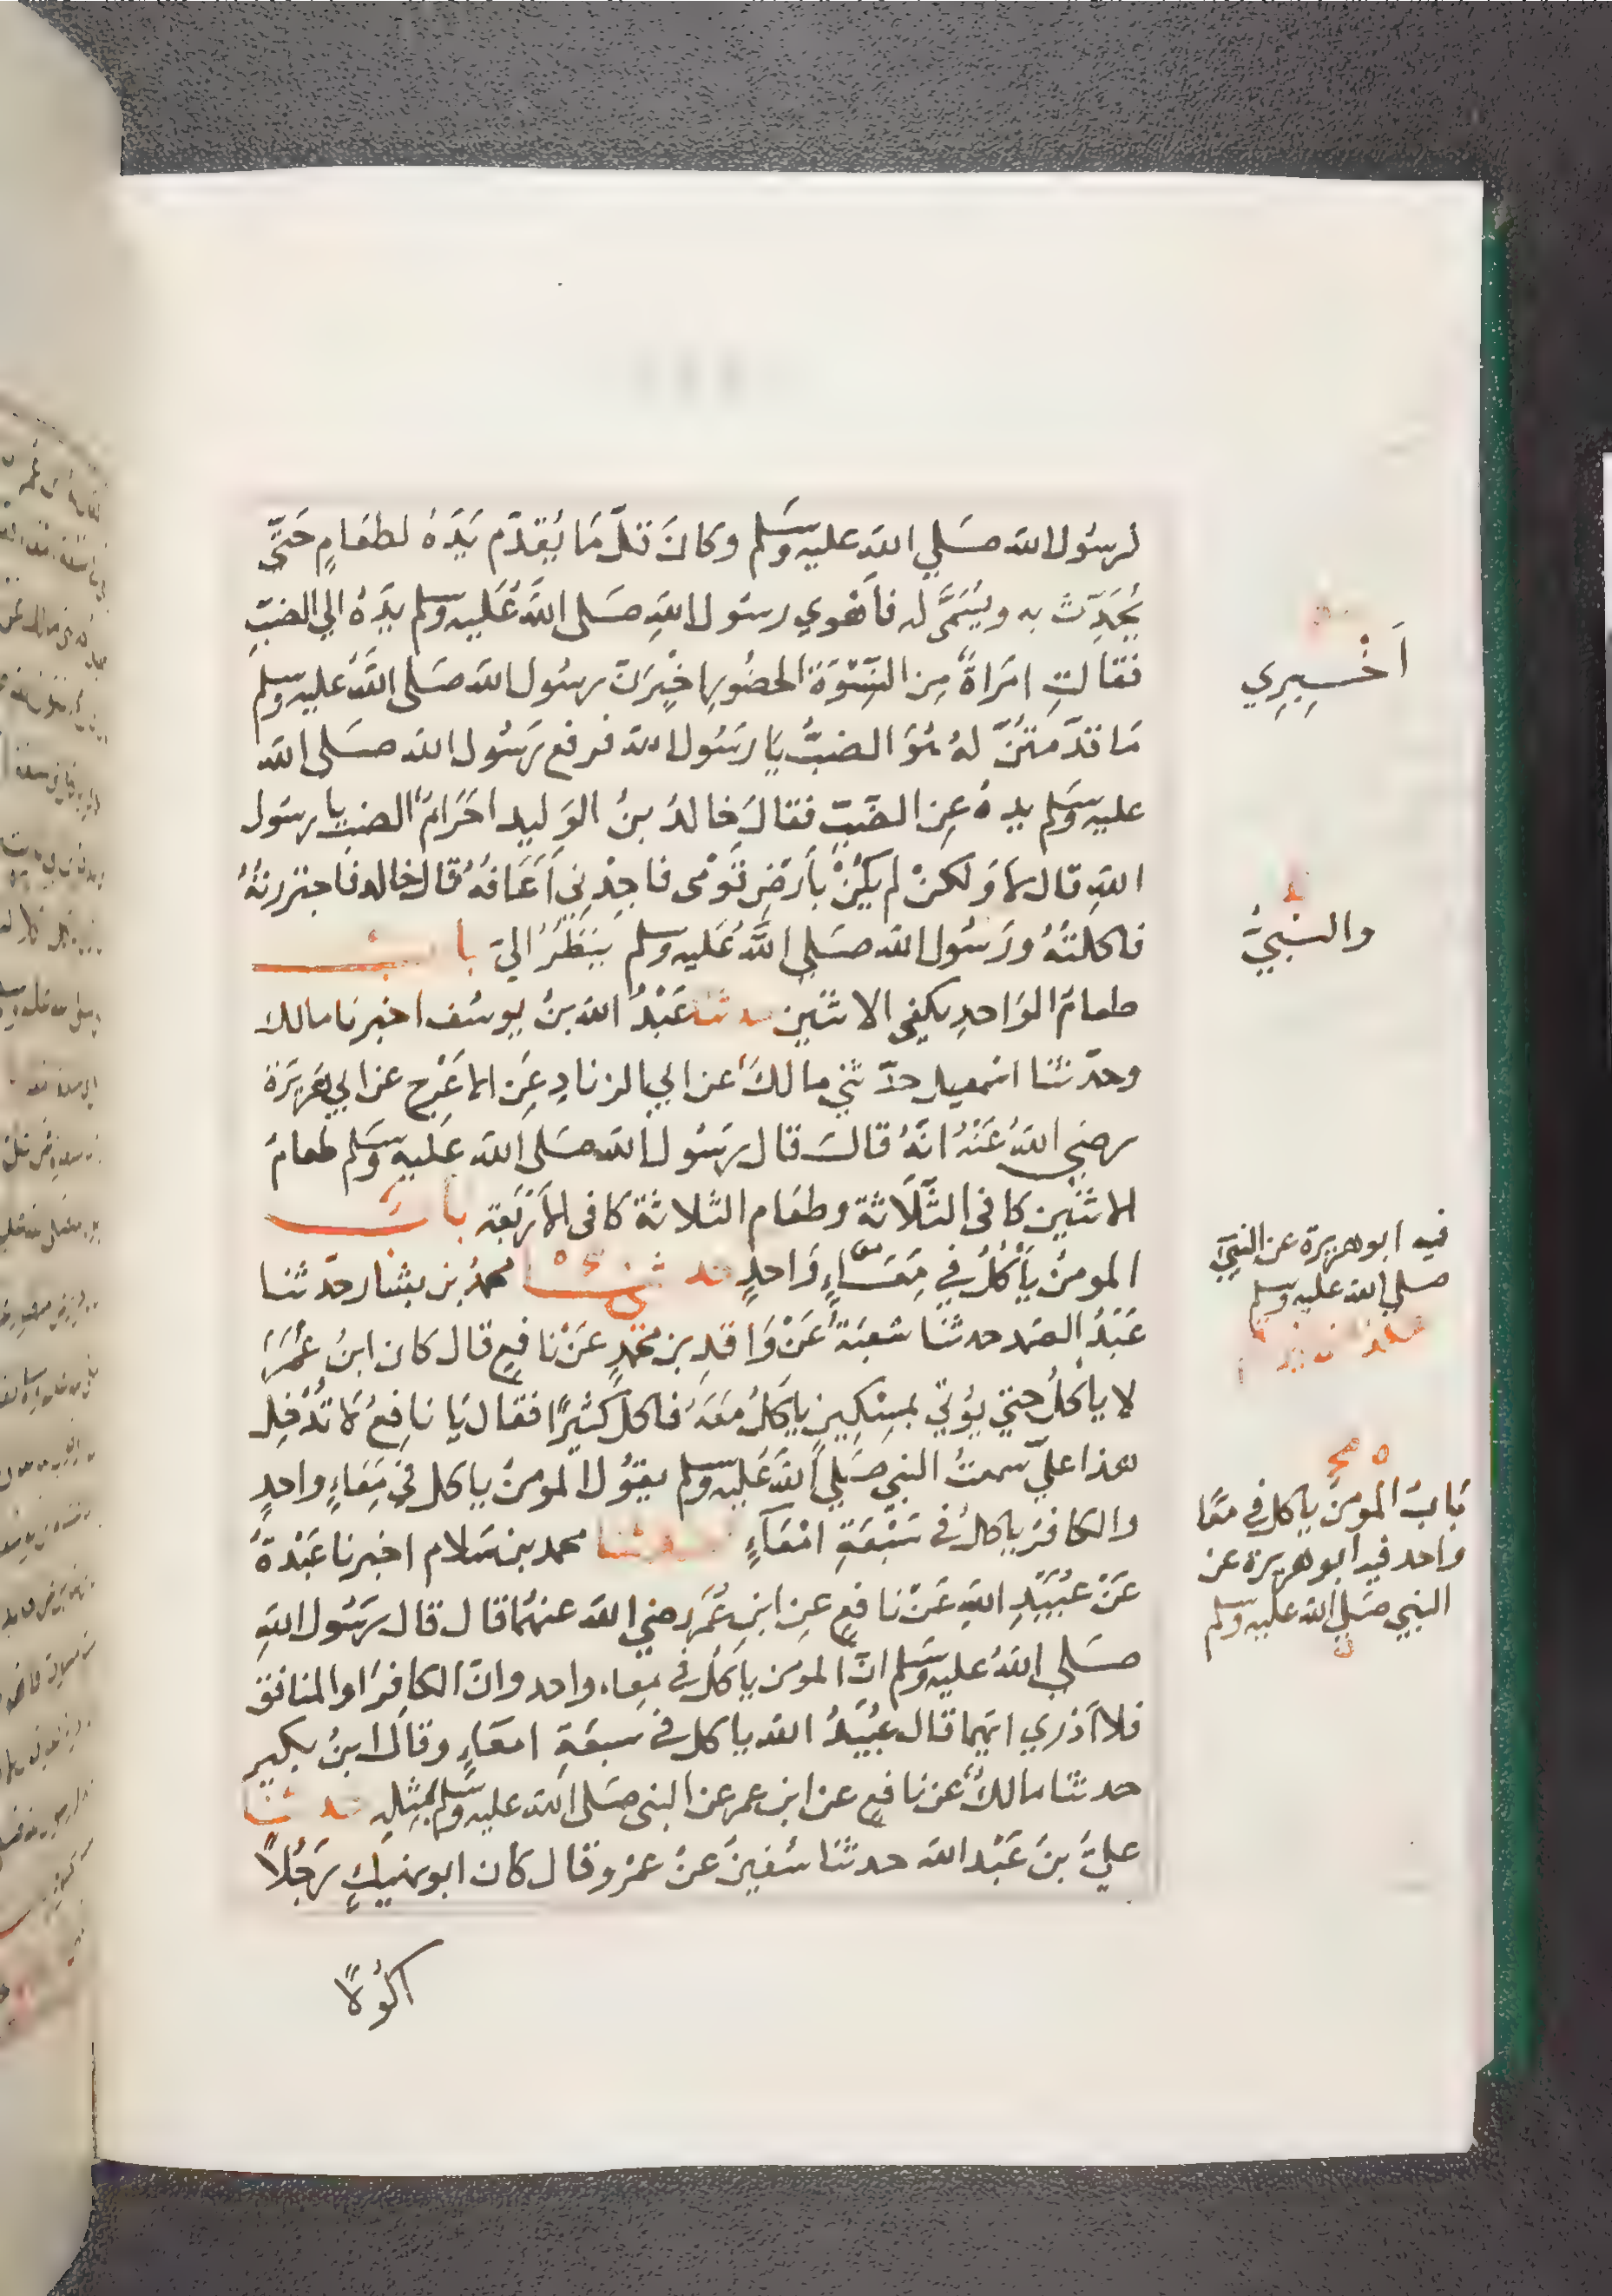 لرسُول الله صَلي الله عليه وسَلم وكانَ قلّ مَا يُقدّم يَدَهُ لطعَامٍ حَتّى
يُحَدّثَ به ويُسَمَّى له فأهْوي رسَول اللهِ صَلى اللهُ عَليه وسلم يدَهُ الي الضبّ
فقالتِ امرَاةٌ مِن النِّسْوَة الحضُورِ اخْبِرَنّ رسُول الله صَلى اللهُ عليه وسلم
مَا قدّمتُنّ لهُ هُوَ الضبُّ يا رسَول الله فرفع رَسُول الله صَلى الله
عليه وسَلم يدهُ عِن الضّبّ فقالَ خالدُ بنُ الوَليد احَرَامٌ الضب يا رسَول
اللهِ قال لا وَلكنْ لم يكُنْ بأرْضِ قَوْمى فاجِدُنِى أعَافهُ قال خالد فاجتررتهُ
فاكلتُهُ ورَسُول الله صَلي اللهُ عَليه وسلم يَنظُرُ اليّ باب
طعامُ الوَاحدِ يكفى الاثنَين حدثنا عَبْدُ الله بنُ يوسُف اخبرنا مالك
وحدّثنا اسْمعيل حدّثني مالكٌ عن ابي الزنادِ عَن الاعْرج عن ابي هرَيْرَة
رضي اللهُ عَنْهُ انّهُ قالَ قال رَسُول الله صَلى الله عَليه وسَلم طعامُ
الاثنَين كافى الثَّلَاثة وطعَام الثلاثة كافى الأرْبَعَة بابُ
المومنُ يَأكُلُ في مِعَاءٍ وَاحدٍ حدثنا محمدُ بن بشار حدّثنا
عَبْدُ الصَمد حدثنا شعبَةُ عَنْ وَاقدِ بن محمّدٍ عَنْ نافعٍ قال كان ابنُ عُمَرَ
لا ياكلُ حتي يُؤتي بمسِكِينٍ ياكَلُ مَعَهُ فاكل كثيرًا فقال يَا نافِعُ لا تُدْخِل
هذا عليّ سمعتُ النبي صَلي اللهُ عَليه وسلم يقوُل المومنُ ياكل في مِعَاءٍ واحدٍ
والكافرُ ياكلُ فى سَبْعَةِ امْعَآءٍ حدثنا محمد بن سَلام اخبرنا عَبْدةُ
عَنْ عُبَيْدِ اللهِ عَنْ نافعٍ عِن ابنِ عُمَر رضي الله عنهُما قال قال رَسُول اللهِ
صَلي اللهُ عليه وسَلم انّ المومن ياكلُ فى مِعاء واحد وانّ الكافِرَ او المنافق
فلا أدْري ايّهما قال عُبَيْدُ الله ياكل فى سبعَةِ امعَاءٍ وقال ابنُ بكير
حدثنا مالكٌ عن نافعٍ عن ابن عمر عن النبى صَلى الله عليه وسَلم بمثلِهِ حدثنا
عليّ بنُ عَبْد الله حدثنا سُفينُ عَنْ عمرٍو قال كان ابو نهيكٍ رَجُلاً
اكُولاً
اَخْبِرِي
والنبيُّ
فيه ابو هريرة عن النبيّ
صلي الله عليه وسلم
صح
بَابُ المومنُ ياكل في معًا
واحد فيه ابو هريرة عن
النبي صَلي الله عليه وسلم